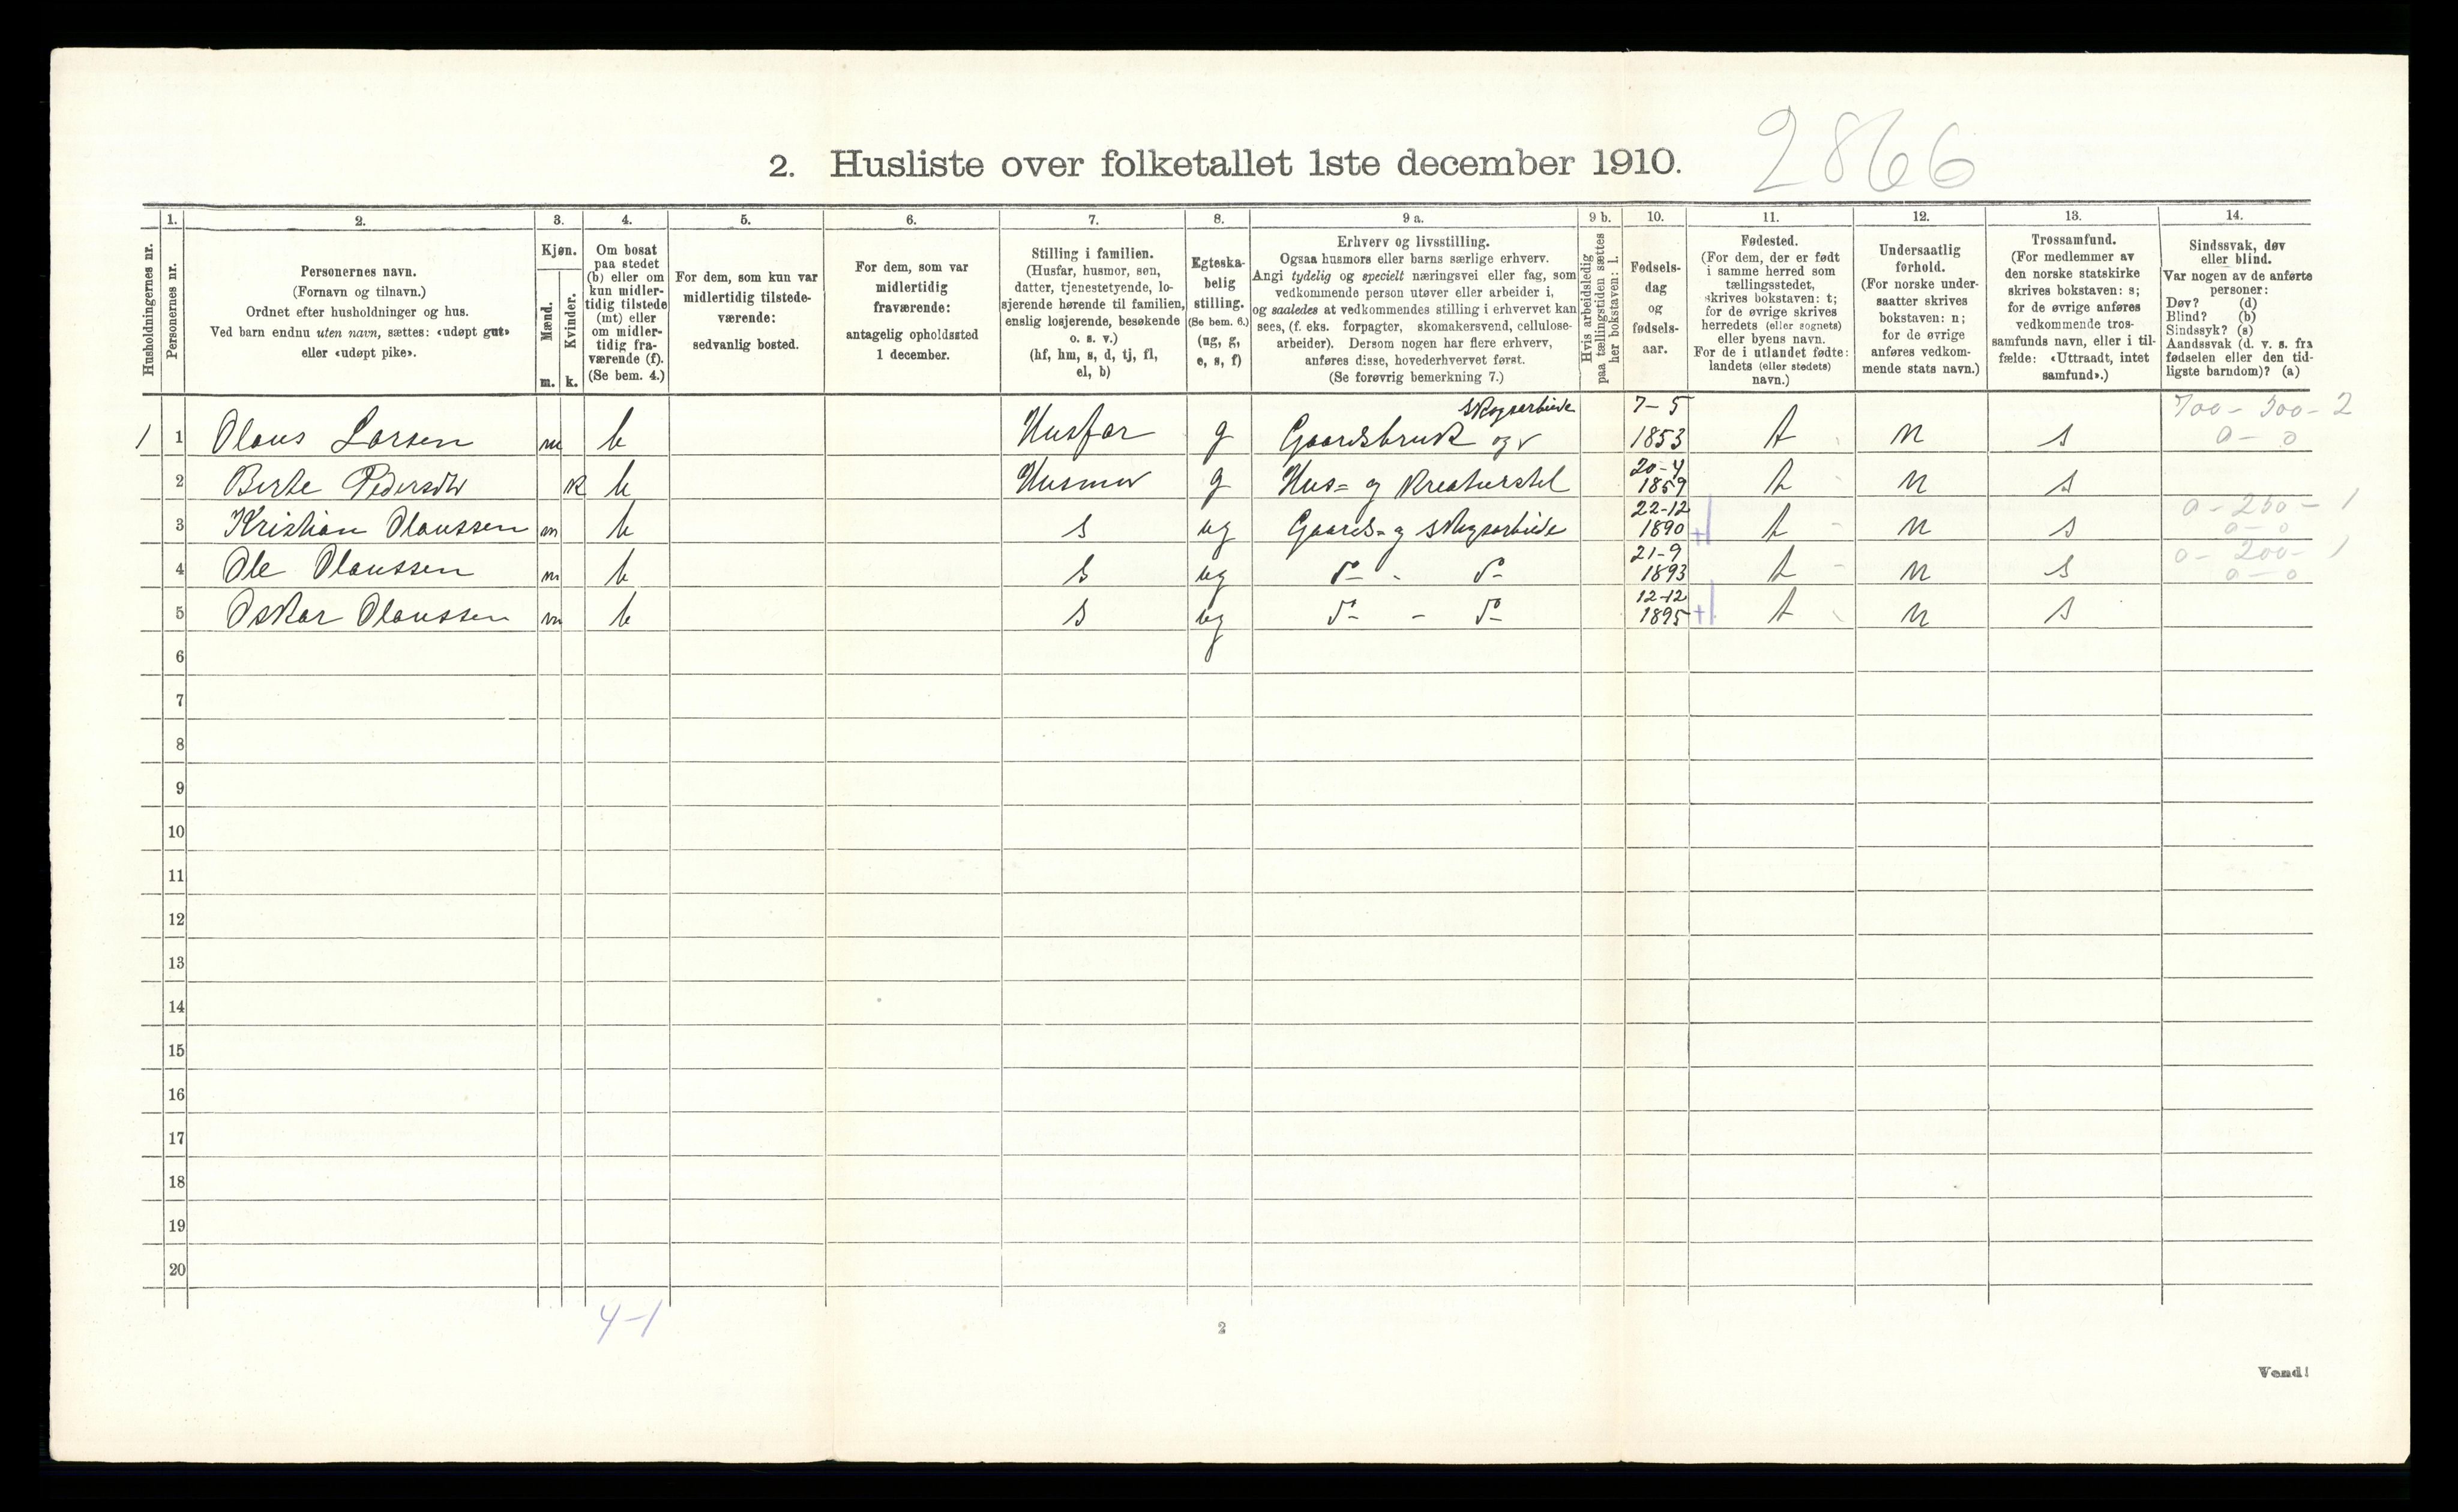 2866
2. Husliste over folketallet 1ste december 1910.
Husholdningernes nr.
1.
Personernes nr.
2.
Personernes navn.
(Fornavn og tilnavn.)
Ordnet efter husholdninger og hus.
Ved barn endnu uten navn, sættes: «udøpt gut»
eller «udøpt pike».
3.
Kjøn.
Mænd.
m.
Kvinder.
k.
4.
Om bosat
paa stedet
(b) eller om
kun midler-
tidig tilstede
(mt) eller
om midler-
tidig fra-
værende (f).
(Se bem. 4.)
5.
For dem, som kun var
midlertidig tilstede-
værende:
sedvanlig bosted.
6.
For dem, som var
midlertidig
fraværende:
antagelig opholdssted
1 december.
7.
Stilling i familien.
(Husfar, husmor, søn,
datter, tjenestetyende, lo-
sjerende hørende til familien,
enslig losjerende, besøkende
o. s. v.)
(hf, hm, s, d, tj, fl,
el, b)
8.
Egteska-
belig
stilling.
(Se bem. 6.)
(ug, g,
e, s, f)
9 a.
Erhverv og livsstilling.
Ogsaa husmors eller barns særlige erhverv.
Angi tydelig og specielt næringsvei eller fag, som
vedkommende person utøver eller arbeider i,
og saaledes at vedkommendes stilling i erhvervet kan
sees, (f. eks. forpagter, skomakersvend, cellulose-
arbeider). Dersom nogen har flere erhverv,
anføres disse, hovederhvervet først.
(Se forøvrig bemerkning 7.)
9 b.
Hvis arbeidsledig
paa tællingstiden sættes
her bokstaven: l.
10.
Fødsels-
dag
og
fødsels-
aar.
11.
Fødested.
(For dem, der er født
i samme herred som
tællingsstedet,
skrives bokstaven: t;
for de øvrige skrives
herredets (eller sognets)
eller byens navn.
For de i utlandet fødte:
landets (eller stedets)
navn.)
12.
Undersaatlig
forhold.
(For norske under-
saatter skrives
bokstaven: n;
for de øvrige
anføres vedkom-
mende stats navn.)
13.
Trossamfund.
(For medlemmer av
den norske statskirke
skrives bokstaven: s;
for de øvrige anføres
vedkommende tros-
samfunds navn, eller i til-
fælde: «Uttraadt, intet
samfund».)
14.
Sindssvak, døv
eller blind.
Var nogen av de anførte
personer:
Døv? (d)
Blind? (b)
Sindssyk? (s)
Aandssvak (d. v. s. fra
fødselen eller den tid-
ligste barndom)? (a)
skogsarbeide 7-5 700-500-2
1 1 Olaus Larsen m b Husfar g Gaardsbruk og 1853 t n s 0-0
20-4
2 Berte Pedersdtr k b Husmor g Hus= og Kreaturstel 1859 t n s
22-12 0-250-1
3 Kristian Olaussen m b s ug Gaards= og skogsarbeide 1890 t n s 0-0
21-9 0-200-1
4 Ole Olaussen m b s ug do - do 1893 t n s 0-0
12-12
5 Oskar Olaussen m b s ug do - do 1895 t n s
6
7
8
9
10
11
12
13
14
15
16
17
18
19
20
4-1
2
Vend!